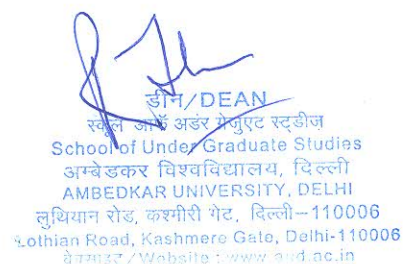 डीन/DEAN
स्कूल ऑफ अंडर ग्रेजुएट स्टडीज़
School of Under Graduate Studies
अम्बेडकर विश्वविद्यालय, दिल्ली
AMBEDKAR UNIVERSITY, DELHI
लुथियान रोड, कश्मीरी गेट, दिल्ली–110006
Lothian Road, Kashmere Gate, Delhi-110006
वेबसाइट / Website : www.aud.ac.in